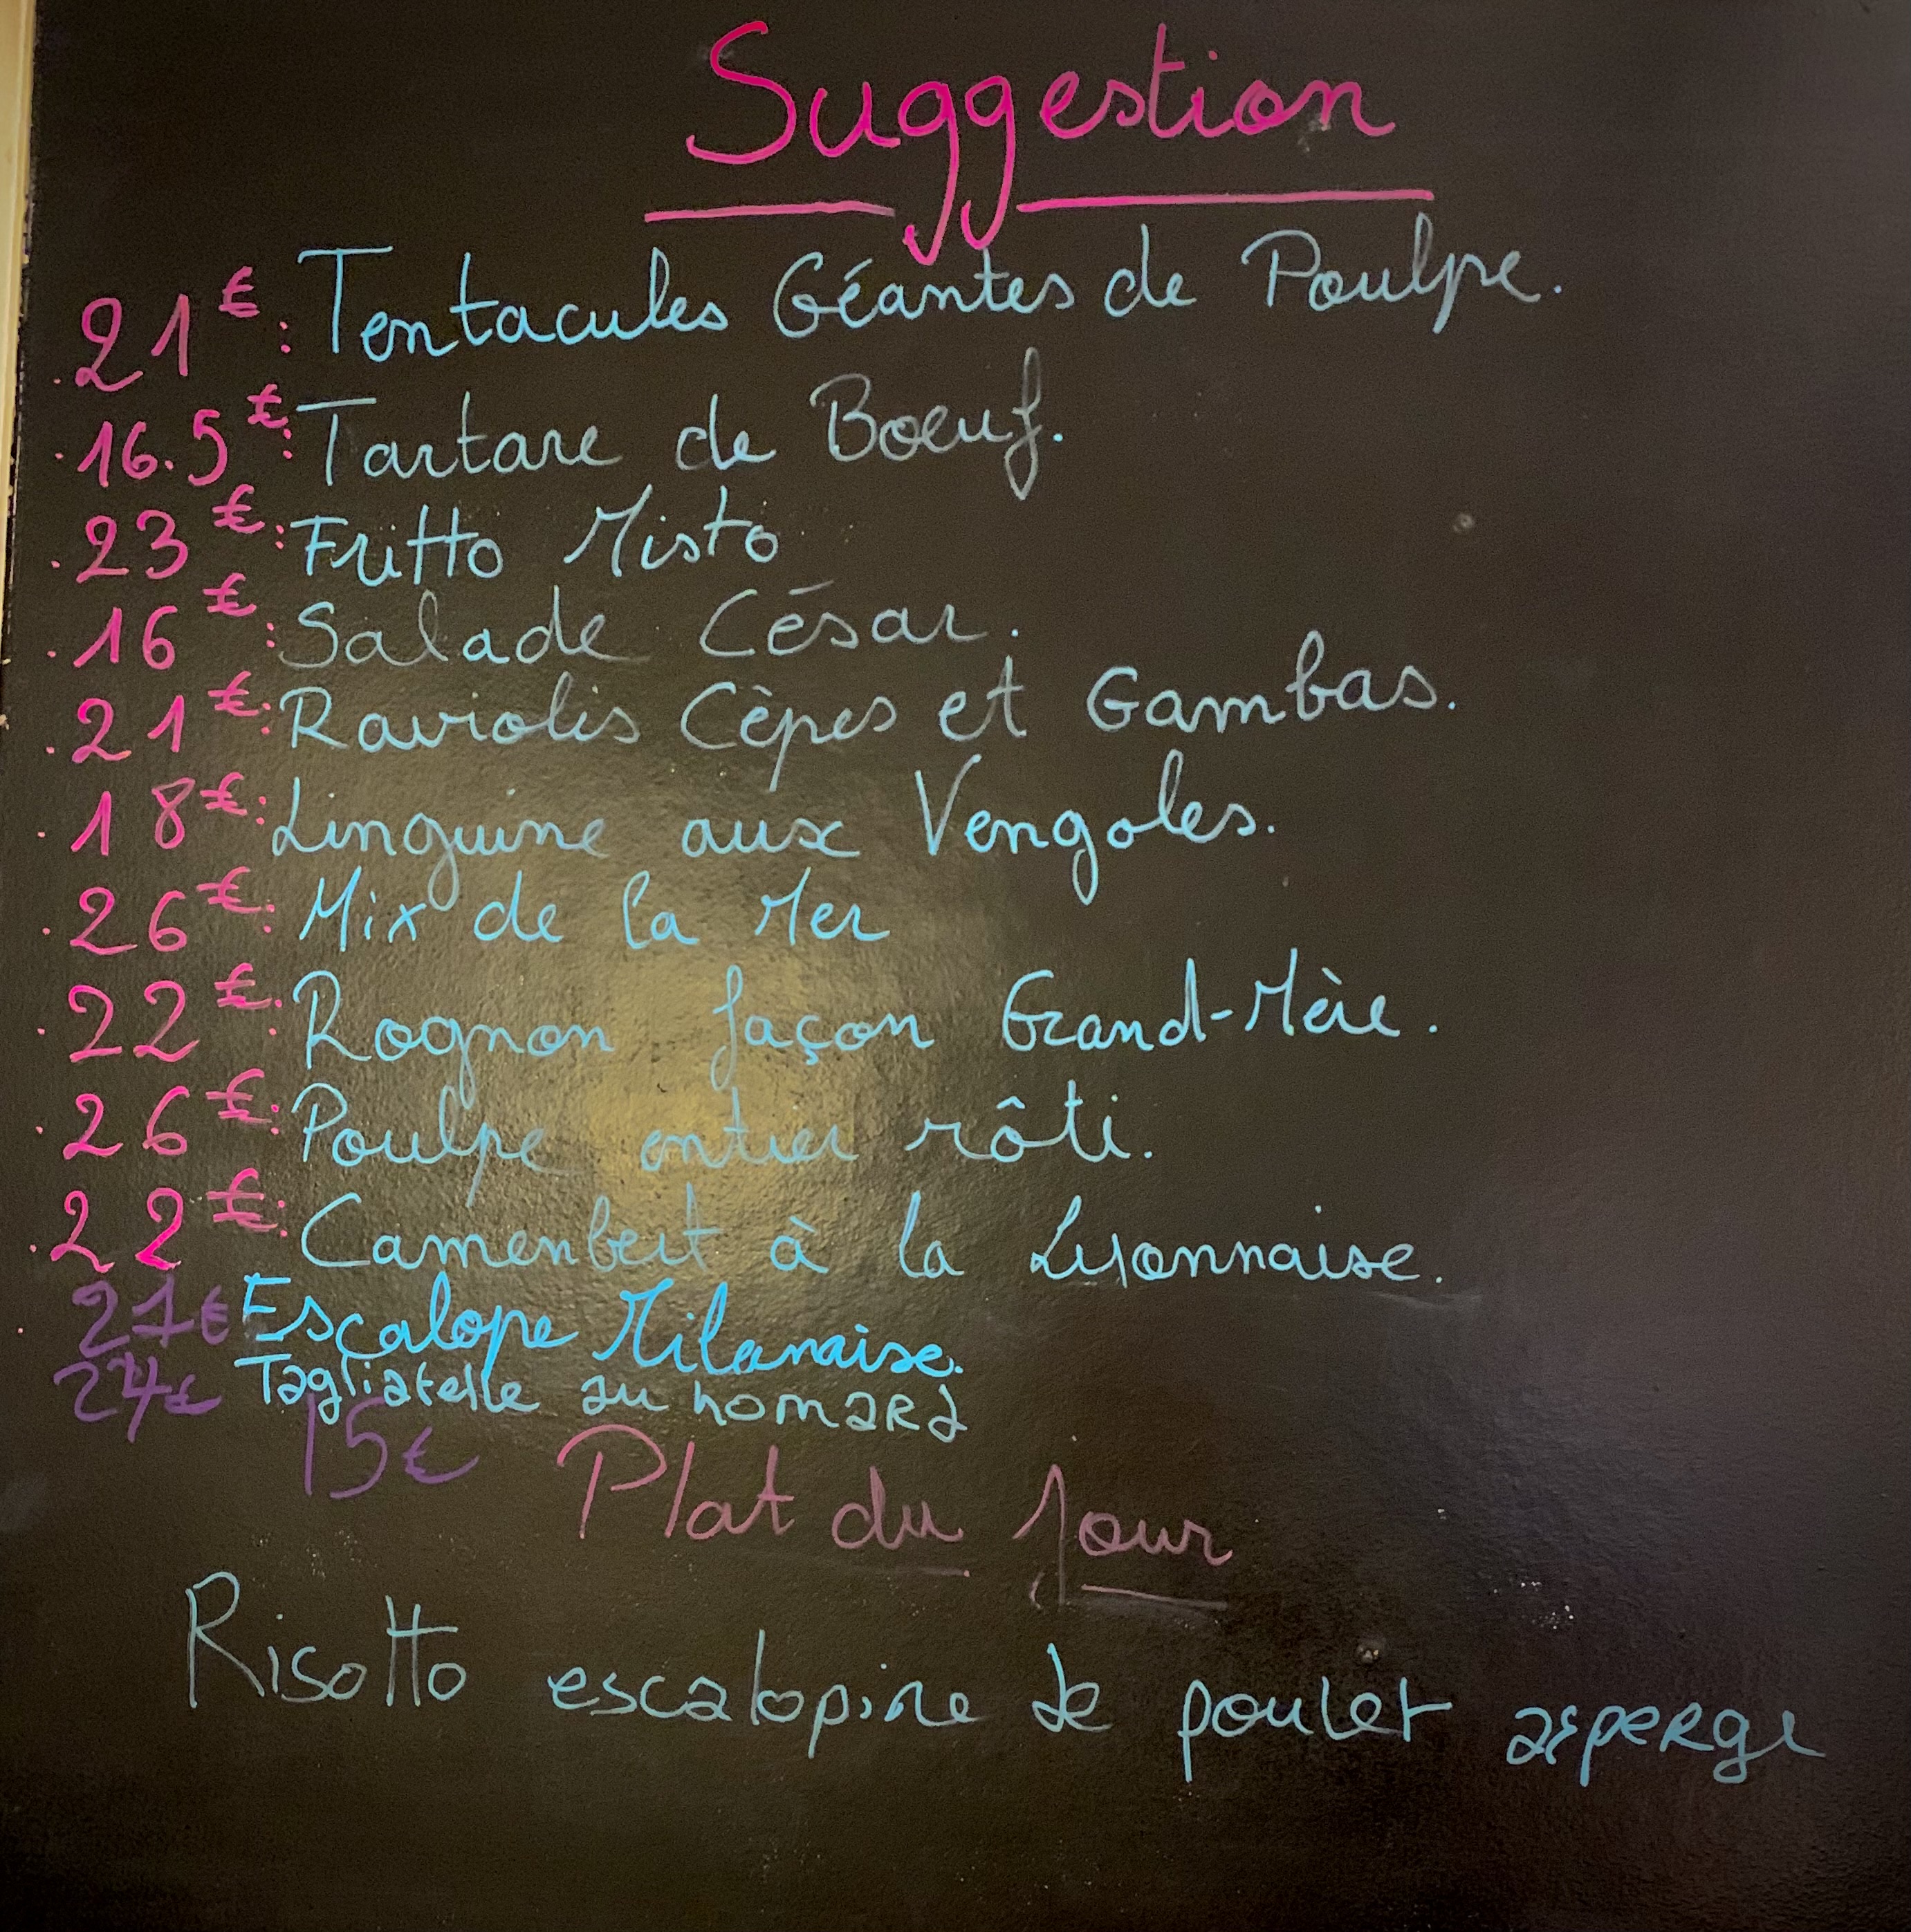 Suggestion
.21€: Tentacules Géantes de Poulpe.
.16.5€: Tartare de Boeuf.
.23€: Fritto Misto
.16€: Salade César.
.21€: Raviolis Cèpes et Gambas.
.18€: Linguine aux Vengoles.
.26€: Mix de la Mer
.22€: Rognon façon Grand-Mère.
.26€: Poulpe entier rôti.
.22€: Camenbert à la Lyonnaise.
.21€ Escalope Milanaise.
24€ Tagliatelle au homard
15€ Plat du Jour
Risotto escalopine de poulet asperge